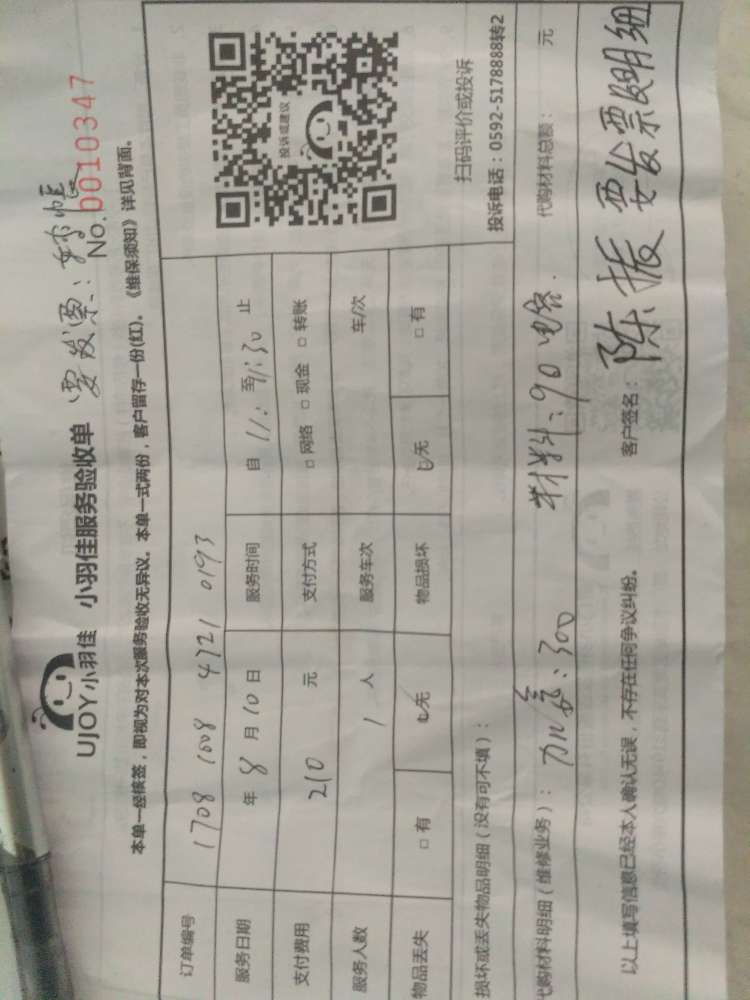 UJOY小羽佳 小羽佳服务验收单 要发票:转帐
No.0010347
本单一经核签,即视为对本次服务验收无异议。本单一式两份,客户留存一份(红)。《维保须知》详见背面。
订单编号 1708 1008 4721 0193
服务日期 年 8 月 10 日 服务时间 自 11: 至 11:30 止
支付费用 210 元 支付方式 □ 网络 □ 现金 □ 转账
服务人数 1 人 服务车次 车/次
物品丢失 □ 有 ☑无 物品损坏 ☑无 □ 有
投诉或建议
扫码评价或投诉
投诉电话:0592-5178888转2
损坏或丢失物品明细(没有可不填):
代购材料明细(维修业务): 300 材料:90 电容. 代购材料总额: 元
以上填写信息已经本人确认无误,不存在任何争议纠纷。 客户签名: 陈振 要发票明细